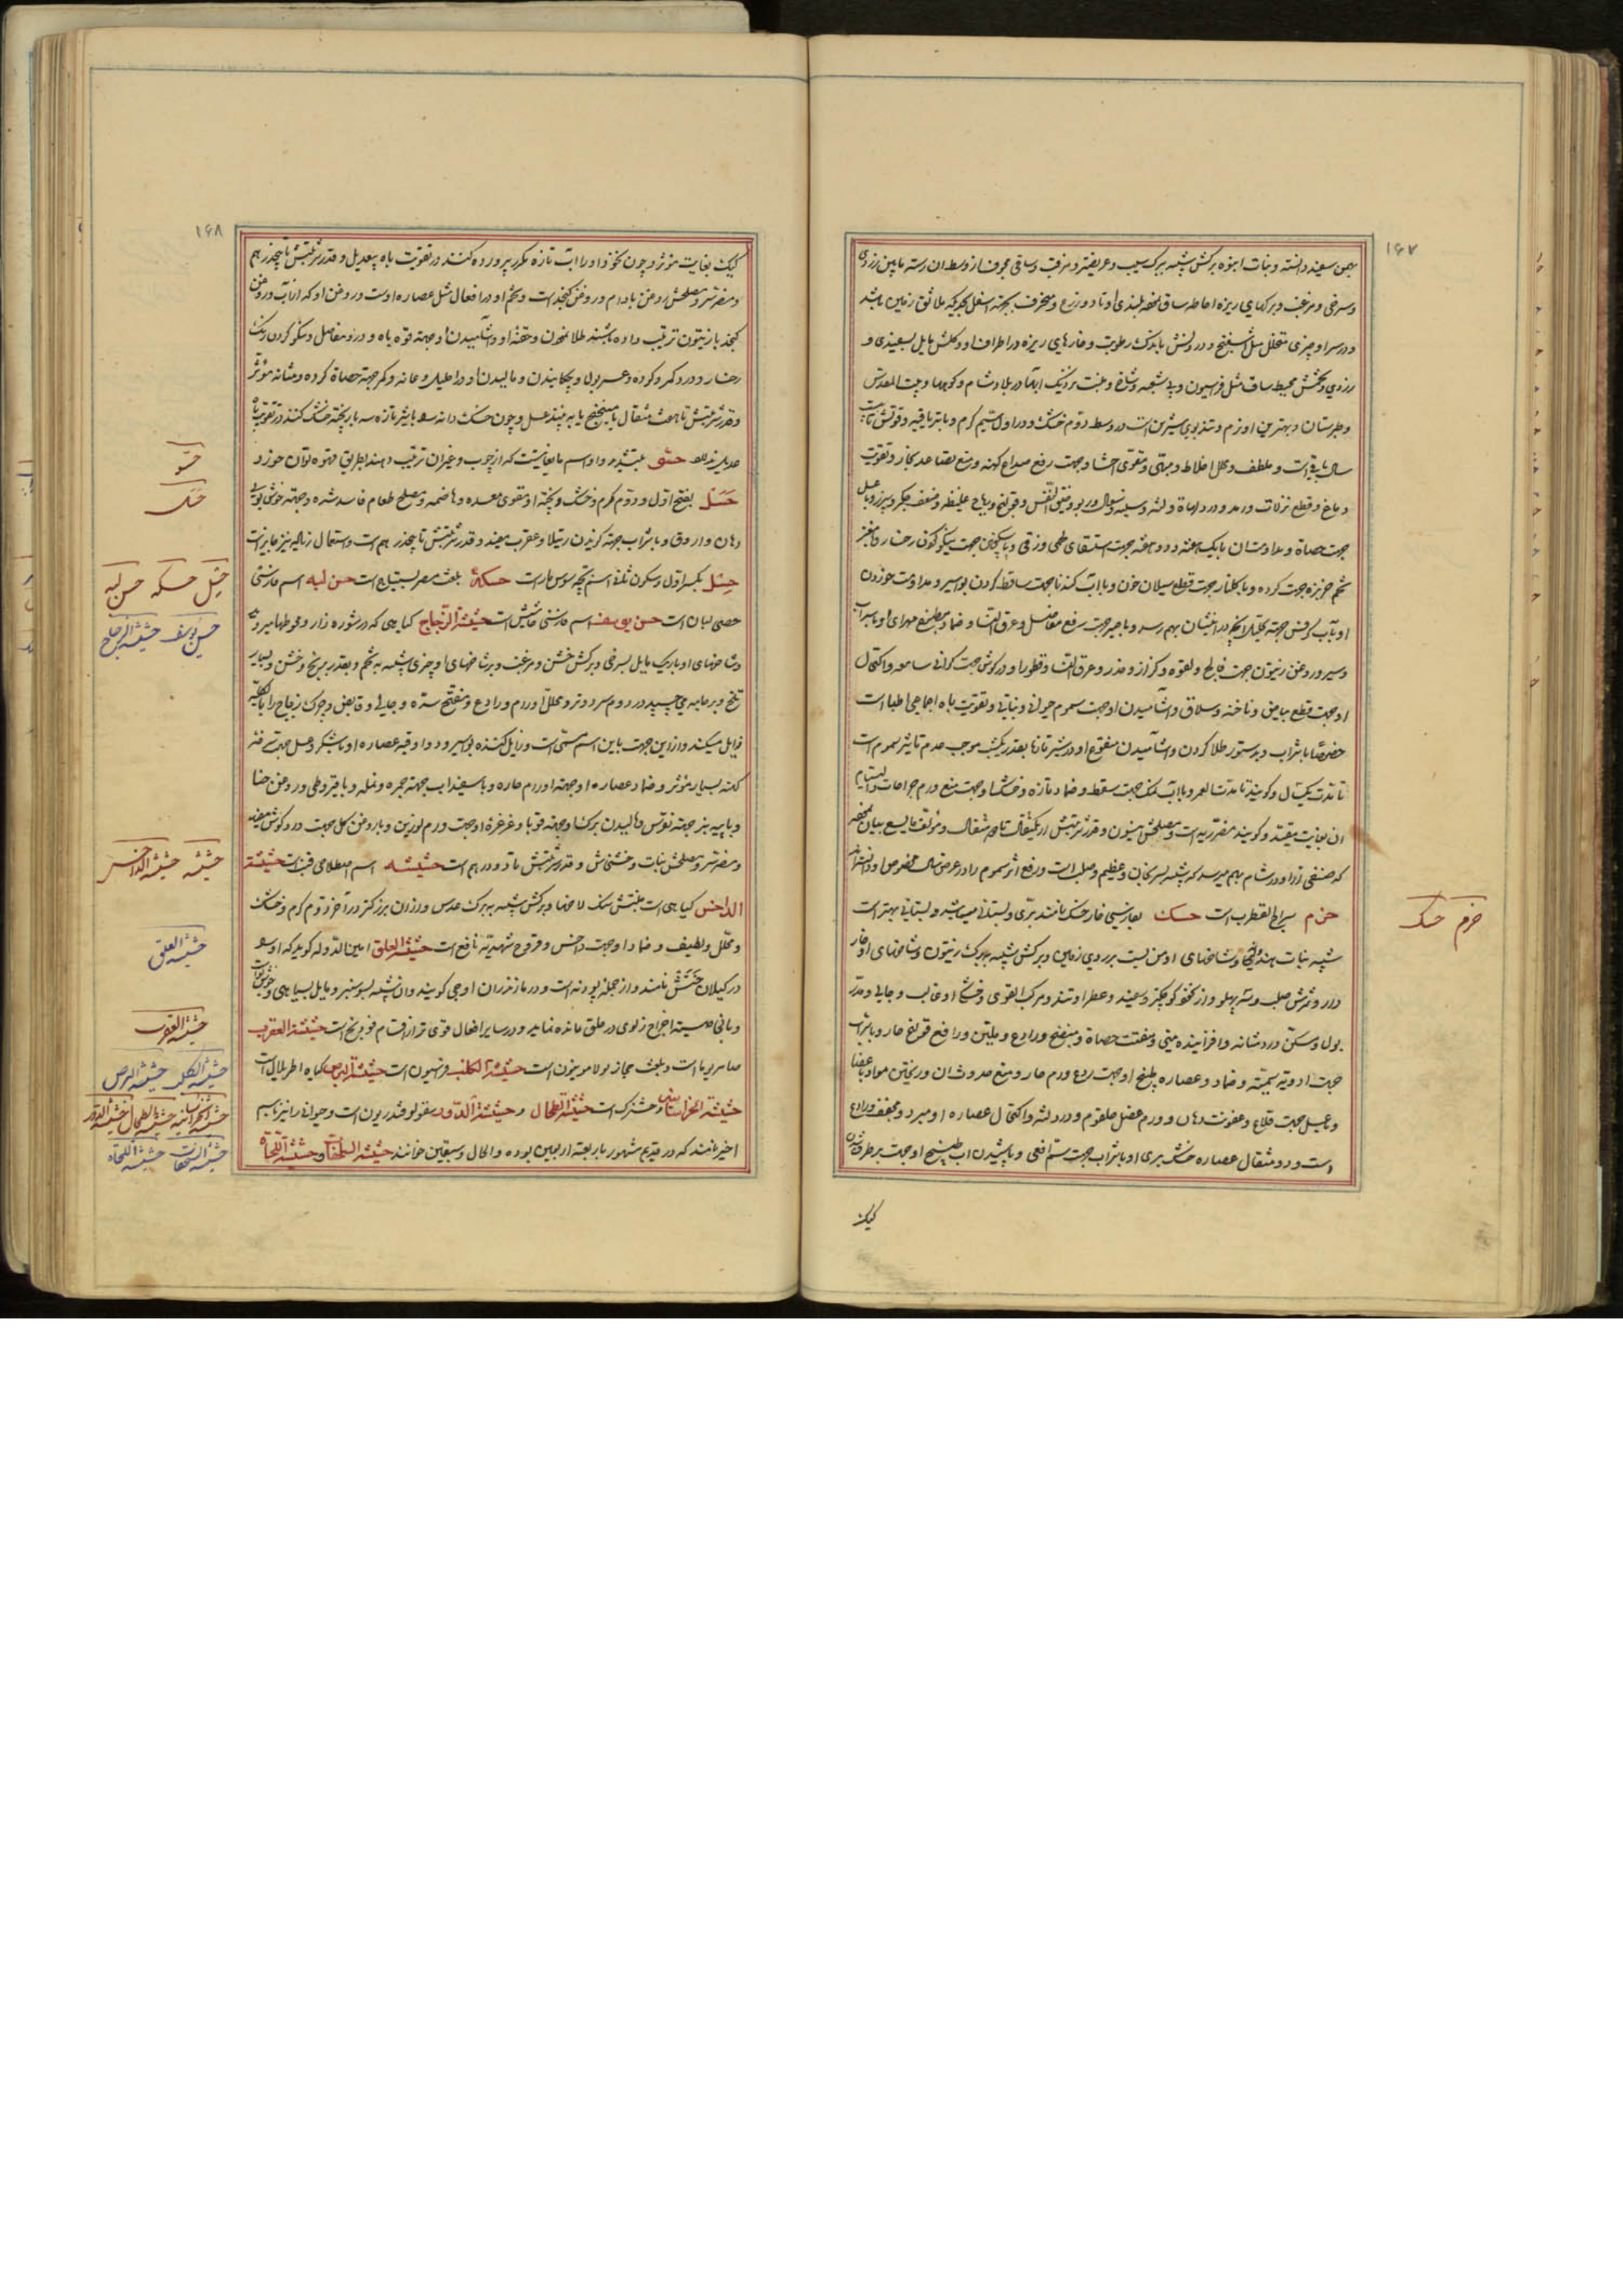 ۱۶۷
و سرخی و مزغب و برگهای ریزه احاطه ساق
و در سر او چیزی متخلخل مثل اسفنج و درونش با اندک رطوبت و خارهای ریزه در اطراف او و گلش مایل بسفیدی و
زردی و تخمش محیط ساق مثل فراسیون و بی شعبه و شاخ و منبت نزدیک آبها در بلاد شام و کوهها و بیت المقدس
و طبرستان و بهترین او زرم و تند بوی شیرین است در وسط دوم خشک و در اول سیم گرم و با تریاقیه و قوتش تا بیست
سال باقیست و ملطف و محلل اخلاط و مبهی و مقوی احشا و جهت رفع صداع کهنه و منع تصاعد بخار و تقویت
دماغ و قطع نزلات و رمد و درد لهاة و لثه و سپرز و ربو و ضیق النفس و قولنج و ریاح غلیظه و ضعف جگر و سپرز و با عسل
جهت حصاة و مداومت آن با یک هفته و دو هفته جهت استسقای لحمی و زقی و با سکنجبین جهت نیکو کردن رخسار و با مغز
تخم خربزه جهت گرده و با گلنار جهت قطع سیلان خون و با آب گندنا جهت ساقط کردن بواسیر و مداومت خوردن
او با آب کرفس جهت تحلیل آنچه در انثیان بهم رسد و با صبر جهت رفع مفاصل و عرق النسا و ضماد مطبوخ مهرای او با سیراب
و سیر و روغن زیتون جهت فالج و لقوه و کزاز و خدر و عرق النسا و قطور او در گوش جهت گرانی سامعه و اکتحال
او جهت قطع بیاض و ناخنه و سلاق و آشامیدن او جهت سموم حیوانی و نباتی و تقویت باه اجماعی اطبا است
خصوصا با شراب و بدستور طلا کردن و آشامیدن منقوع او در شیر تازه بقدر یکشب موجب عدم تاثیر سموم است
تا مدت یکسال و گویند تا مدت العمر و با آب نمک جهت سقطه و ضماد تازه و خشک او جهت منع ورم جراحات و التیام
آن بغایت مفید و گویند مضر ریه است و مصلحش انیسون و قدر شربتش از یکمثقال تا سه مثقال و مؤلف ما لا یسع بیان نموده
که صنفی از او در شام بهم میرسد که شبیه ببادنجان و عظیم و صلب است و رفع اثر سموم را در عرض سال مخصوص او دانسته‌اند
حزم سراج القطرب است حسک بفارسی خار خسک نامند بری و بستانی میباشد و بستانی بهتر است
شبیه نبات هندوانه و شاخهای او منبسط بر روی زمین و برگش شبیه ببرگ زیتون و شاخهای او خار
دار و ثمرش صلب و سه پهلو و از نخود کوچکتر و سفید و عطر او تند و مرکب القوی و خشکی او غالب و جالی و مدر
بول و مسکن درد مثانه و افزاینده منی و مفتت حصاة و منضج و رادع و ملین و رافع قولنج حار و با شراب
جهت ادویه سمیه و ضماد و عصاره و طبیخ او جهت ردع ورم حار و منع حدوث آن و ریختن مواد باعضا
و با عسل جهت قلاع و عفونت دهان و ورم عضل حلقوم و درد لثه و اکتحال عصاره او مبرد و مجفف و رادع
است و دو مثقال عصاره خسک بری او با شراب جهت سم افعی و پاشیدن آب طبیخ او جهت برطرف شدن
کیک
حزم حسک
۱۶۸
کیک بغایت مؤثر و چون نخود او را با آب تازه مکرر پرورده کنند در تقویت باه بیعدیل و قدر شربتش تا پنجدرهم
و مضر سر و مصلحش روغن بادام و روغن کنجد است و تخم او در افعال مثل عصاره اوست و روغن او که از آب و روغن
کنجد یا زیتون ترتیب داده باشند طلا نمودن و حقنه او و آشامیدن او جهت قوه باه و درد مفاصل و نیکو کردن رنگ
رخسار و درد کمر و گرده و عسر بول و چکانیدن و مالیدن او در احلیل و عانه و کمر جهت حصاة گرده و مثانه مؤثر
و قدر شربتش تا هفت مثقال با میفختج یا به نبیذ عسل و چون خسک دانه را با شیر تازه سه بار پخته خشک کنند در تقویت باه
عدیل ندارد حسو
حسل بفتح اول و دوم گرم و خشک و پخته او مقوی معده و هاضمه و مصلح طعام فاسد شده و جهت خوشبوئی
دهان و اروق و با شراب جهت گزیدن رتیلا و عقرب مفید و قدر شربتش تا پنجدرهم است و استعمال زیاد نیز جایز است
حسل بکسر اول و سکون ثانی اسم بچه سوسمار است حسکه بلغت مصر بسنباج است حسن لبه اسم فارسی
حصی لبان است حسن یوسف اسم فارسی فاشیش است حشیشة الزجاج گیاهی که در شوره زار و محوطها میروید
و شاخهای او باریک مایل بسرخی و برگش خشن و مزغب و بر شاخهای او چیزی شبیه به تخم و بقدر برنج و خشن و بسیار
تلخ و بر جامه می چسپد در دوم سرد و تر و محلل اورام و رادع و مفتح سده و جالی و قابض و چرک زجاج را بالکلیه
زایل میکند و از این جهت باین اسم مسمی است و زایل کننده بواسیر و دو اوقیه عصاره او با شکر و عسل جهت سرفه
کهنه بسیار مؤثر و ضماد عصاره او جهت اورام حاره و با سفیداب جهت جمره و نمله و با قیروطی و روغن حنا
و با پیه بز جهت نقرس و مالیدن برگ او جهت قوبا و غرغره او جهت ورم لوزتین و با روغن گل جهت درد گوش مفید
و مضر سر و مصلحش نبات و خشخاش و قدر شربتش تا دو درهم است حشیشه اسم اصطلاحی قنب است حشیشة
الداحس گیاهی است منبتش سنگ لاخها و برگش شبیه ببرگ عدس و از آن بزرگتر در آخر دوم گرم و خشک
و محلل و لطیف و ضماد او جهت داحس و قروح شهدیه نافع است حشیشة العلق امین الدوله گوید که او را
در گیلان خنش نامند و از جمله پودنه است و در مازندران اوجی گویند و آن شبیه بسوسنبر و مایل بسیاهی و خوشبو است
و با خاصیت اخراج زلوی در حلق مانده نماید و در سایر افعال قوی تر از اقسام فودنج است حشیشة العقرب
صامریوما است و بلغت حجاز بولاموینون است حشیشة الکلب فراسیون است حشیشة البرص گیاه اطریلال است
حشیشة الخراسانیه وخشیزک است حشیشة الطحال و حشیشة الدود سقولوقندریون است و حیوانی را نیز باسم
اخیر نامند که در قدیم مشهور باربعة اربعین بوده و الحال و سبعین خوانند حشیشة السلحفات و حشیشة اللجاة
حسو
حسل
حسل حسکه حسن لبه
حسن یوسف حشیشة الزجاج
حشیشه حشیشة الداحس
حشیشة العلق
حشیشة العقرب
حشیشة الکلب حشیشة البرص
حشیشة الخراسانیه حشیشة الطحال حشیشة الدود
حشیشة السلحفات حشیشة اللجاة